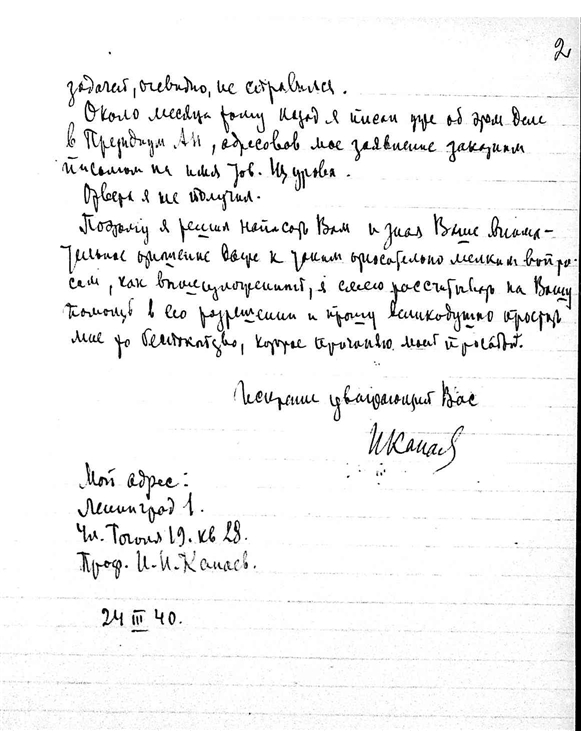 2
задачей, очевидно, не справился.
Около месяца тому назад я писал уже об этом деле
в Президиум АН, адресовав мое заявление заказным
письмом на имя тов.
Ответа я не получил.
Поэтому я решил написать Вам и зная Ваше внима-
тельное отношение даже к таким относительно мелким вопро-
сам, как вышеизложенный, я смею рассчитывать на Вашу
помощь в его разрешении и прошу великодушно простить
мне то беспокойство, которое причиняю моей просьбой.
Искренне уважающий Вас
И Канаев
Мой адрес:
Ленинград 1.
Ул. Гоголя 19. кв 28.
Проф. И. И. Канаев.
24 III 40.